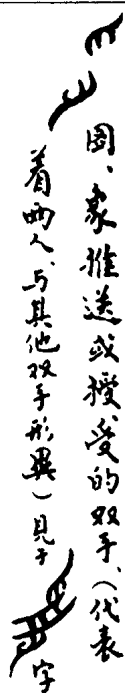 圖、象推送或授受的双手、(代表
着兩人、与其他双手形異)見于
字